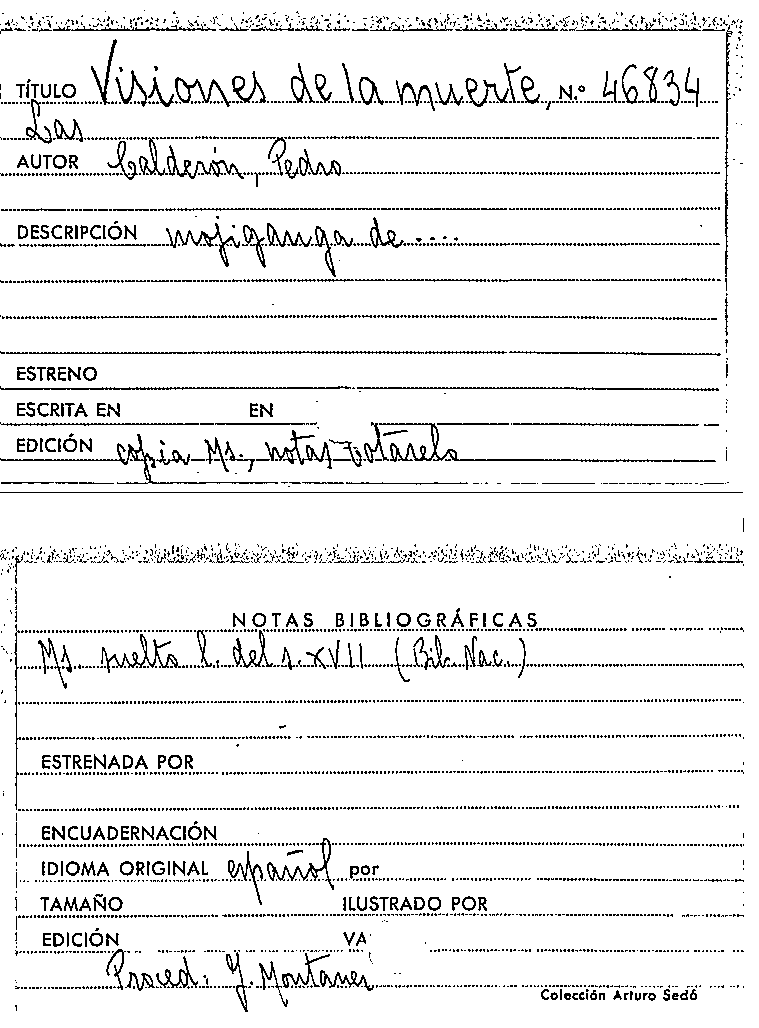 TÍTULO Visiones de la muerte, N.º 46834
Las
AUTOR Calderón, Pedro
DESCRIPCIÓN mojiganga de ....
ESTRENO
ESCRITA EN EN
EDICIÓN copia Ms., notas Cotarelo
NOTAS BIBLIOGRÁFICAS
Ms. suelto l. del s. XVII (Bib. Nac.)
ESTRENADA POR
ENCUADERNACIÓN
IDIOMA ORIGINAL español por
TAMAÑO ILUSTRADO POR
EDICIÓN VA
Proced: J. Montaner
Colección Arturo Sedó